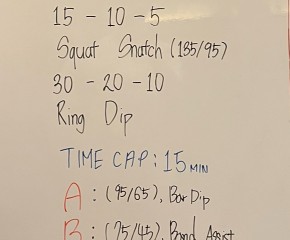 15 - 10 - 5
Squat Snatch (135/95)
30 - 20 - 10
Ring Dip
TIME CAP: 15 MIN
A : (95/65), Bar Dip
B : (75/45), Band Assist